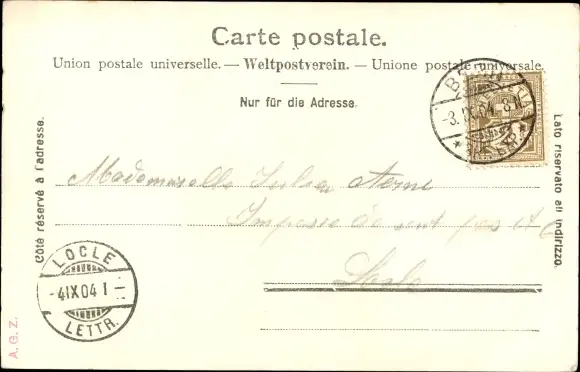 Carte postale.
Union postale universelle. — Weltpostverein. — Unione postale universale.
Nur für die Adresse.
Côté réservé à l'adresse.
Lato riservato all' indirizzo.
HELVETIA
-3.IX.04.-8
Mademoiselle
Impasse de
Locle
LOCLE
-4IX04 I-
LETTR.
A. G. Z.